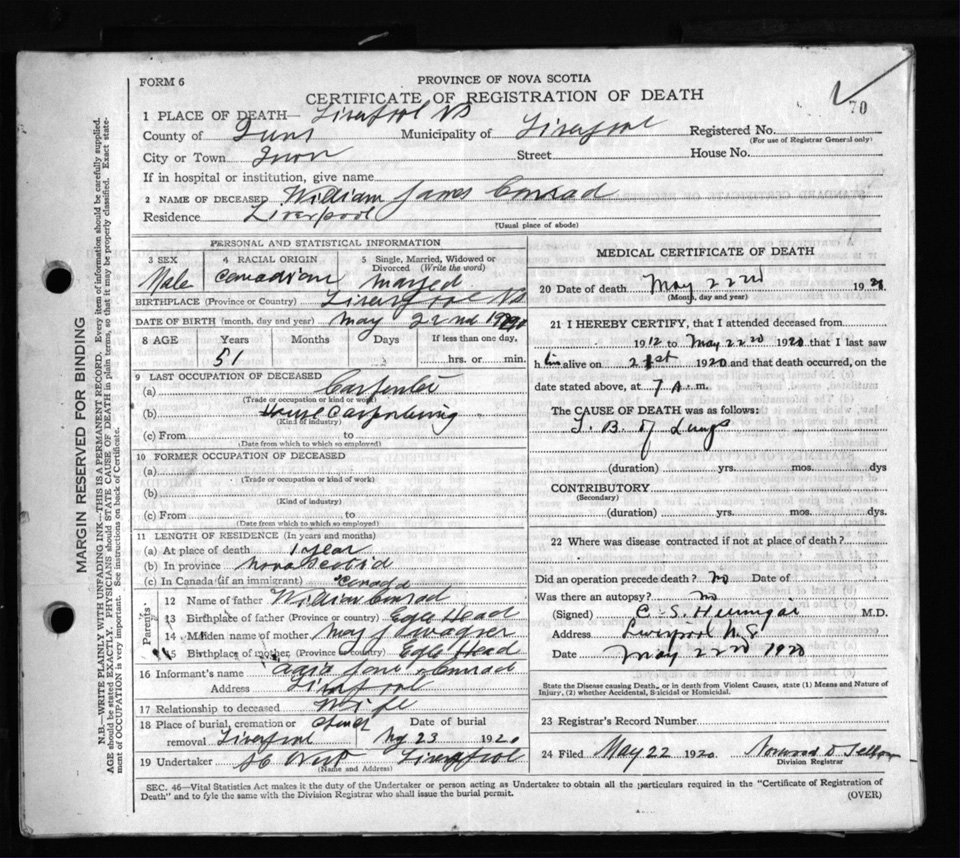 FORM 6
PROVINCE OF NOVA SCOTIA
CERTIFICATE OF REGISTRATION OF DEATH
70
1 PLACE OF DEATH— Liverpool NS
County of Municipality of Liverpool Registered No.
(For use of Registrar General only)
City or Town Street House No.
If in hospital or institution, give name
2 NAME OF DECEASED William James Conrad
Residence Liverpool
(Usual place of abode)
PERSONAL AND STATISTICAL INFORMATION
3 SEX Male
4 RACIAL ORIGIN Canadian
5 Single, Married, Widowed or Divorced (Write the word) Married
BIRTHPLACE (Province or Country) Liverpool NS
DATE OF BIRTH (month, day and year) May 22nd
8 AGE Years Months Days If less than one day,
51 hrs. or min.
9 LAST OCCUPATION OF DECEASED
(a) Carpenter
(Trade or occupation or kind or work)
(b) House Carpentering
(Kind of industry)
(c) From to
(Date from which to which so employed)
10 FORMER OCCUPATION OF DECEASED
(a)
(Trade or occupation or kind of work)
(b)
(Kind of industry)
(c) From to
(Date from which to which so employed)
11 LENGTH OF RESIDENCE (In years and months)
(a) At place of death 1 year
(b) In province Nova Scotia
(c) In Canada (if an immigrant) Canada
Parents
12 Name of father William Conrad
13 Birthplace of father (Province or country) Egle Head
14 Maiden name of mother May J Wagner
15 Birthplace of mother (Province or country) Egle Head
16 Informant's name Jane Conrad
Address Liverpool
17 Relationship to deceased Wife
18 Place of burial, cremation or removal Liverpool Date of burial 23 1920
19 Undertaker West Liverpool
(Name and Address)
MEDICAL CERTIFICATE OF DEATH
20 Date of death May 22nd 19
(Month, day and year)
21 I HEREBY CERTIFY, that I attended deceased from
1912 to May 22nd 1920 that I last saw
him alive on 21st 1920 and that death occurred, on the
date stated above, at 7 A. m.
The CAUSE OF DEATH was as follows:
T. B. of Lungs
(duration) yrs. mos. dys
CONTRIBUTORY
(Secondary)
(duration) yrs. mos. dys.
22 Where was disease contracted if not at place of death?
Did an operation precede death? no Date of
Was there an autopsy? no
(Signed) C. S. M.D.
Address Liverpool N.S
Date May 22nd 1920
State the Disease causing Death, or in death from Violent Causes, state (1) Means and Nature of Injury, (2) whether Accidental, Suicidal or Homicidal.
23 Registrar's Record Number
24 Filed May 22 1920 Norwood D.
Division Registrar
SEC. 46—Vital Statistics Act makes it the duty of the Undertaker or person acting as Undertaker to obtain all the particulars required in the "Certificate of Registration of
Death" and to fyle the same with the Division Registrar who shall issue the burial permit.
(OVER)
MARGIN RESERVED FOR BINDING
N.B.—WRITE PLAINLY WITH UNFADING INK—THIS IS A PERMANENT RECORD. Every item of information should be carefully supplied.
AGE should be stated EXACTLY. PHYSICIANS should STATE CAUSE OF DEATH in plain terms, so that it may be properly classified. Exact state-
ment of OCCUPATION is very important. See instructions on back of Certificate.